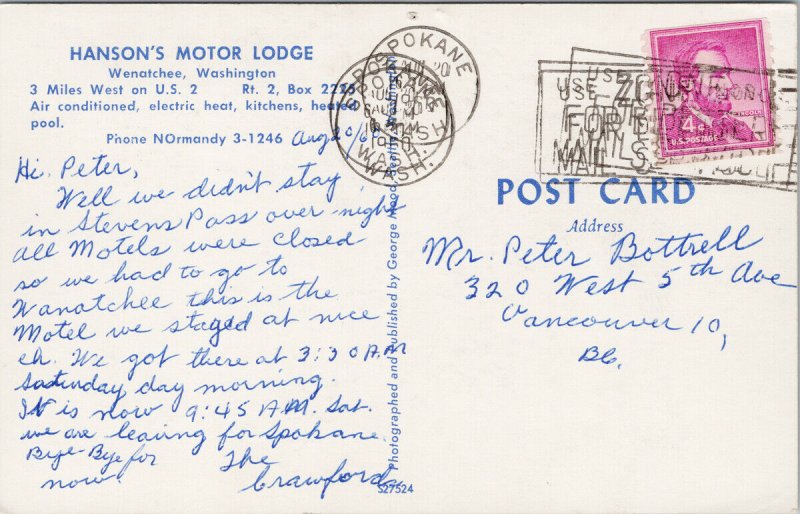 HANSON'S MOTOR LODGE
Wenatchee, Washington
3 Miles West on U.S. 2 Rt. 2, Box 2226
Air conditioned, electric heat, kitchens, heated
pool.
Phone NOrmandy 3-1246
Hi, Peter,
Well we didn't stay
in Stevens Pass over night
all Motels were closed
so we had to go to
Wanatchee this is the
Motel we stayed at nice
eh. We got there at 3:30 AM
Saturday day morning.
It is now 9:45 A.M. Sat.
we are leaving for Spokane.
Bye-Bye for
now.
The
Crawfords
Photographed and Published by George Hood
S27524
SPOKANE
WASH.
USE
MAIL
LINCOLN
4¢
U.S. POSTAGE
POST CARD
Address
Mr. Peter Bottrell
320 West 5th Ave
Vancouver 10,
BC.